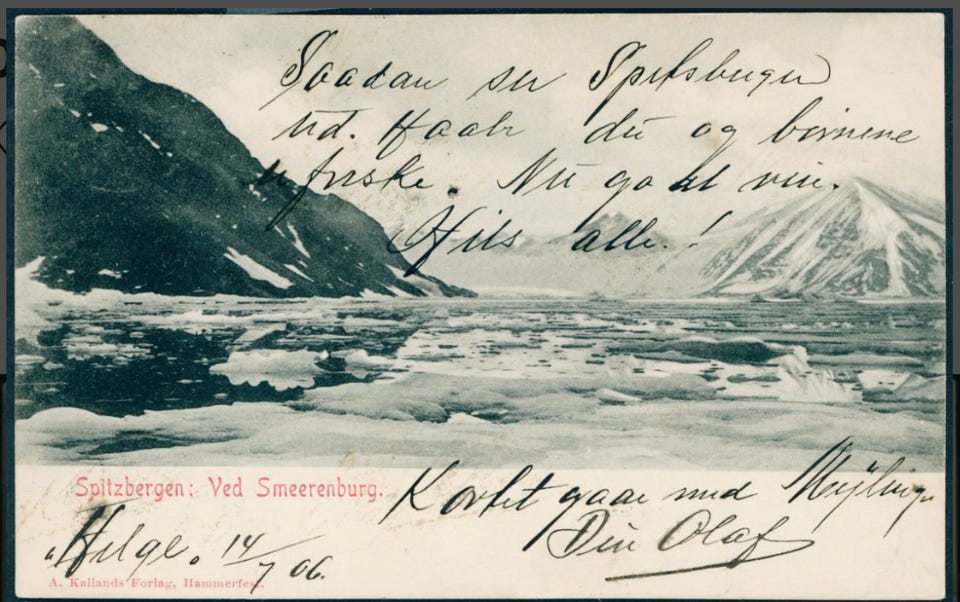 Saadan ser Spitsbergen
ud. Haaber du og børnene
er friske. Nu godt vin.
Hils alle.!
Spitzbergen: Ved Smeerenburg.
Kortet gaar med
Din Olaf
"Helge" 14/7 06.
A. Kallands Forlag, Hammerfest.